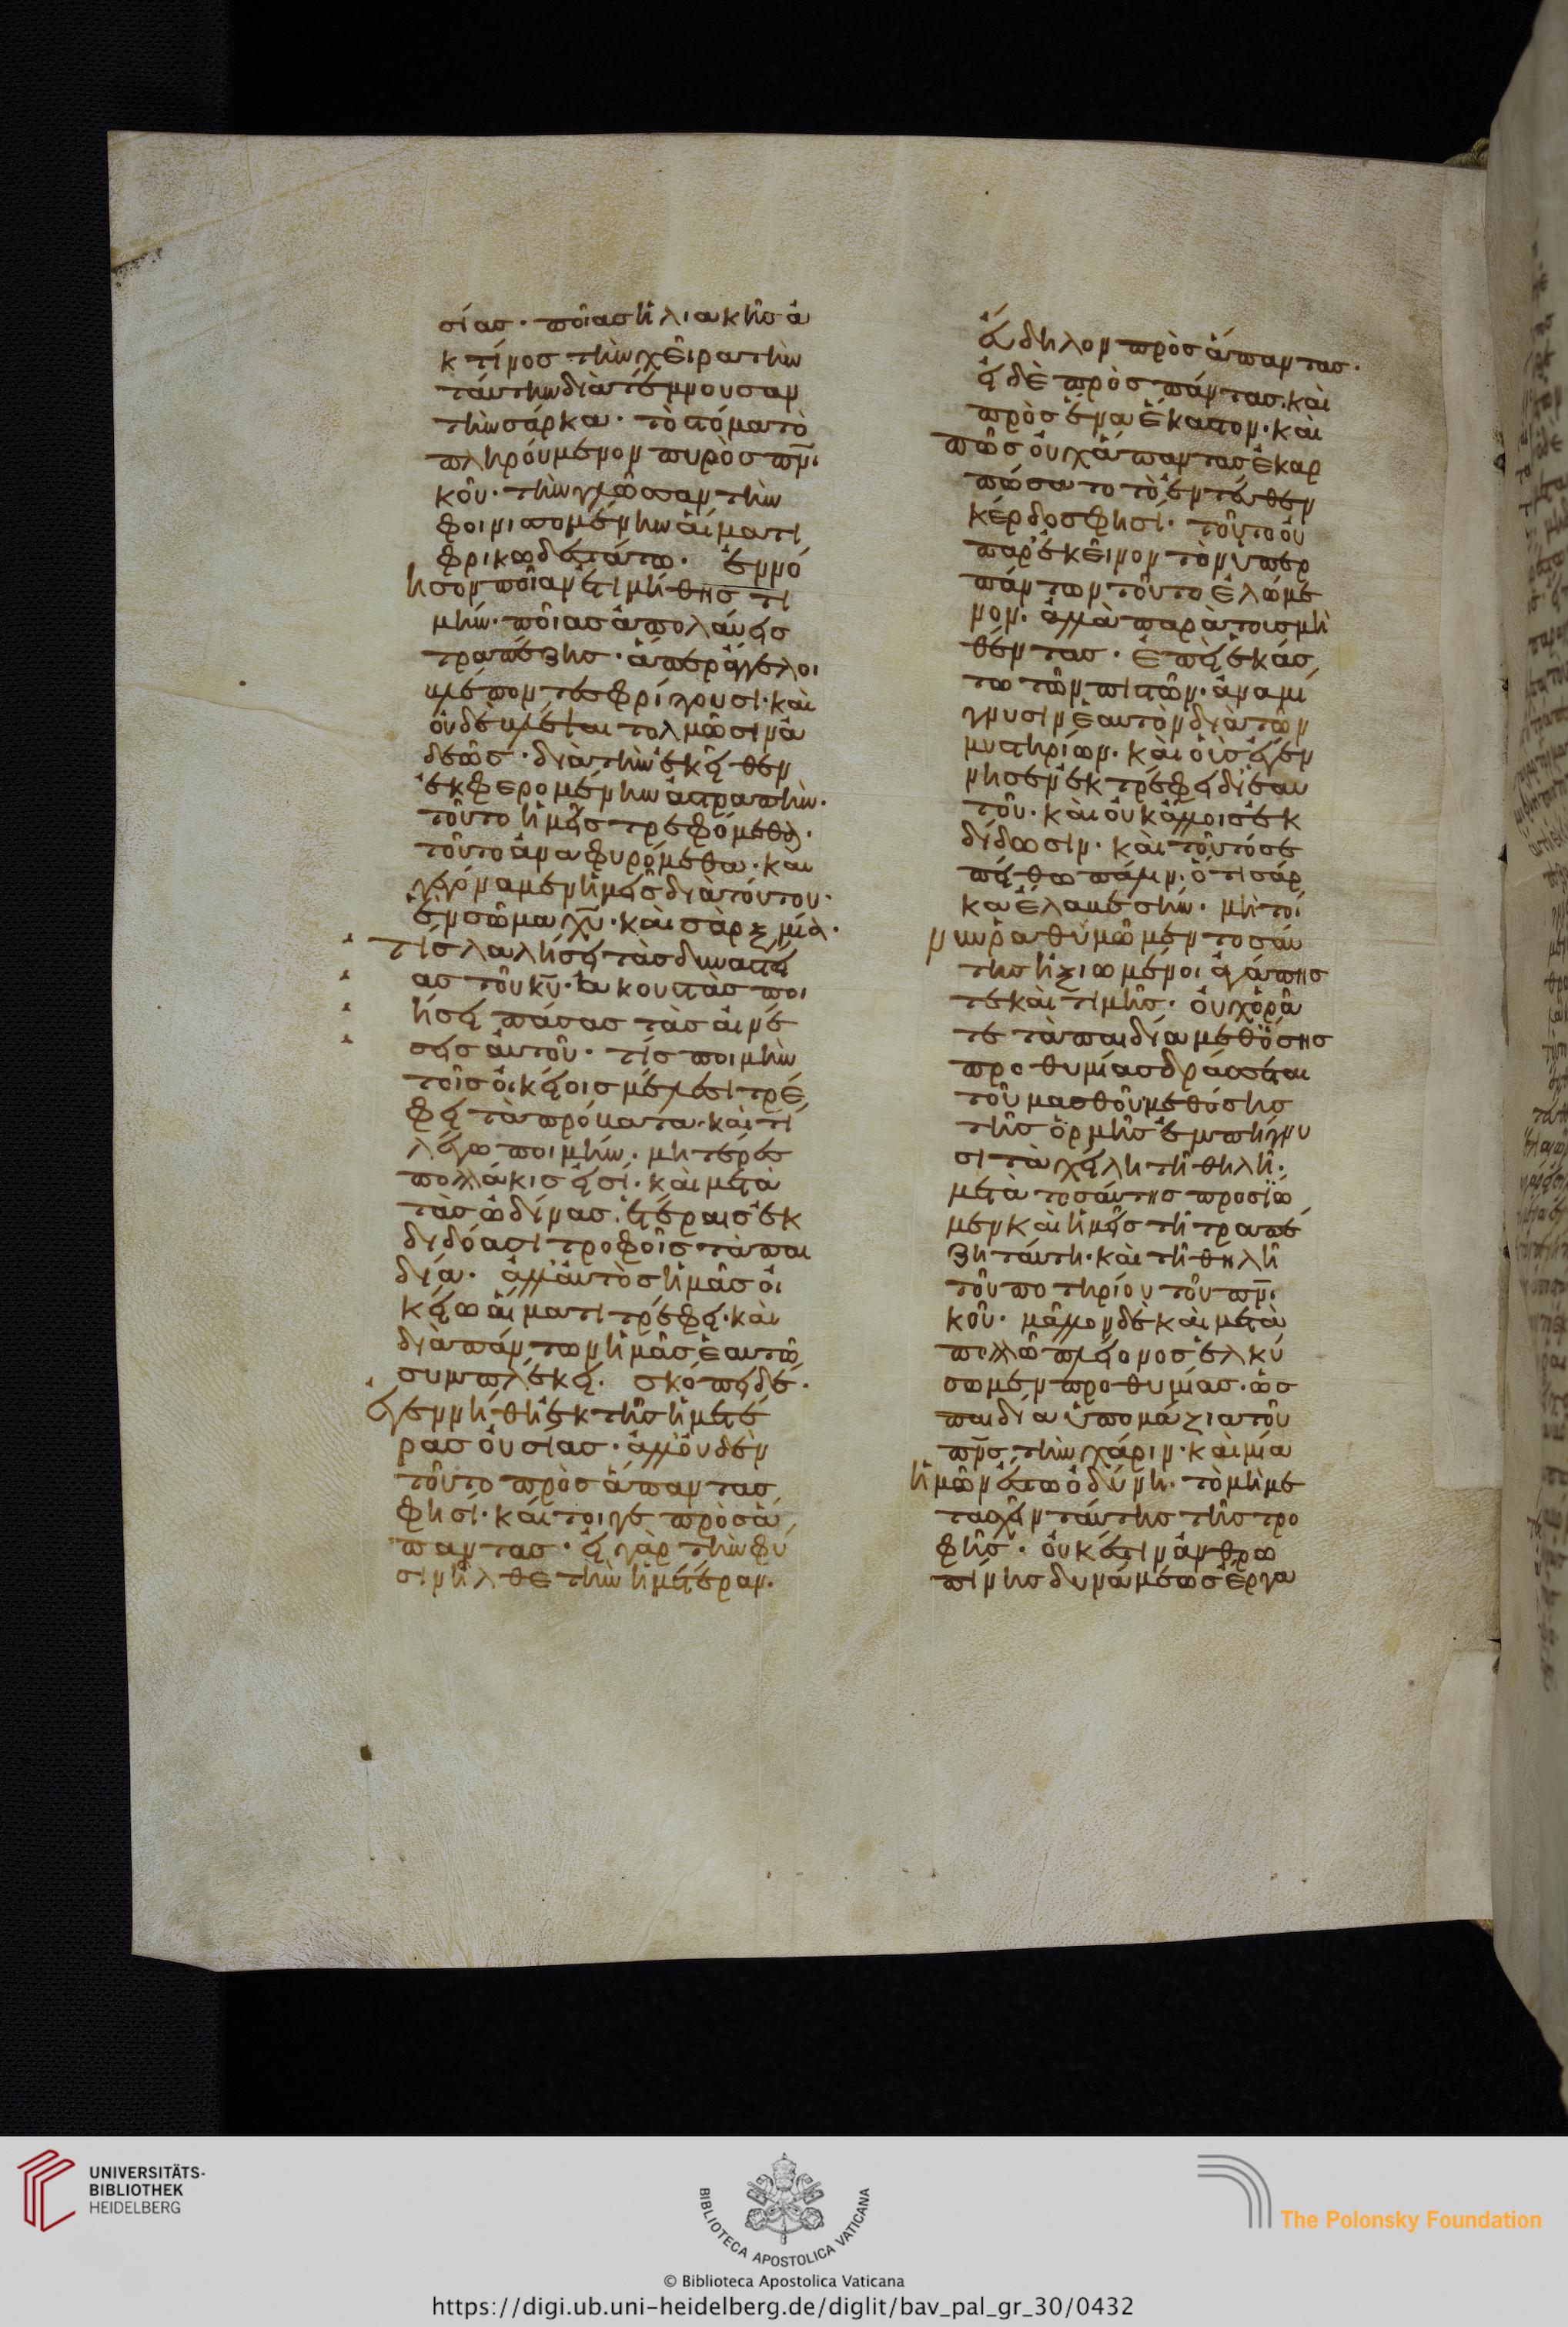 σίας· ποίας ἡλιακῆς ἀ
κτίνος τὴν χεῖρα τὴν
ταύτην διατέμνουσαν
τὴν σάρκα· τὸ στόμα τὸ
πληρούμενον πυρὸς πν̅ι
κοῦ· τὴν γλῶσσαν τὴν
φοινισσομένην αἵματι
φρικωδεστάτω· ἐννό
ησον ποίαν ἐτιμήθης τι
μήν· ποίας ἀπολαύεις
τραπέζης· ἅπερ ἄγγελοι
βλέποντες φρίττουσι· καὶ
οὐδὲ βλέψαι τολμῶσιν ἀ
δεῶς· διὰ τὴν ἐκεῖθεν
ἐκφερομένην ἀστραπήν·
τοῦτο ἡμεῖς τρεφόμεθα·
τοῦτο ἀναφυρόμεθα· καὶ
γεγόναμεν ἡμεῖς διὰ τούτου·
ἓν σῶμα χυ̅· καὶ σὰρξ μία·
τίς λαλήσει τὰς δυναστεί
ας τοῦ κυ̅· ἀκουστὰς ποι
ήσει πάσας τὰς αἰνέ
σεις αὐτοῦ· τίς ποιμὴν
τοῖς οἰκείοις μέλεσι τρέ
φει τὰ πρόβατα· καὶ τί
λέγω ποιμήν· μητέρες
πολλάκις εἰσί· καὶ μετὰ
τὰς ὠδῖνας· ἑτέραις ἐκ
διδόασι τροφοῖς τὰ παι
δία· ἀλλ' αὐτὸς ἡμᾶς οἰ
κείω αἵματι τρέφει· καὶ
διὰ πάντων ἡμᾶς ἑαυτῶ
συμπλέκει· σκόπει δέ·
ἐγεννήθη ἐκ τῆς ἡμετέ
ρας οὐσίας· ἀλλ' οὐδὲν
τοῦτο πρὸς ἅπαντας
φησί· καίτοιγε πρὸς ἅ
παντας· εἰ γὰρ τὴν φύ
σιν ἦλθε τὴν ἡμετέραν·
εὔδηλον πρὸς ἅπαντας·
εἰ δὲ πρὸς πάντας· καὶ
πρὸς ἕνα ἕκαστον· καὶ
πῶς οὐχ ἅπαντας ἐκαρ
πώσαντο τὸ ἐντεῦθεν
κέρδος φησί· τοῦτο οὐ
παρ' ἐκεῖνον τὸν ὑπὲρ
πάντων τοῦτο ἑλόμε
νον· ἀλλὰ παρὰ τοὺς μὴ
θέντας· ἐπεὶ ἑκάσ
τω τῶν πιστῶν· ἀναμί
γνυσιν ἑαυτὸν διὰ τῶν
μυστηρίων· καὶ οὓς ἐγέν
νησεν ἐκτρέφει δι' ἑαυ
τοῦ· καὶ οὐκ ἄλλοις ἐκ
δίδωσιν· καὶ τοῦτό σε
πείθω πάλιν· ὅτι σάρ
κα ἔλαβε σήν· μὴ τοί
νυν ῥαθυμῶμεν τοσαύ
της ἠξιωμένοι ἀγάπης
τε καὶ τιμῆς· οὐχ ὁρᾶ
τε τὰ παιδία μεθ' ὅσης
προθυμίας δράσσεται
τοῦ μασθοῦ· μεθ' ὅσης
τῆς ὁρμῆς ἐμπήγνυ
σι τὰ χείλη τῆ θηλῆ·
μετὰ τοσαύτης προσΐω
μεν καὶ ἡμεῖς τῆ τραπέ
ζη ταύτη· καὶ τῆ θηλῆ
τοῦ ποτηρίου τοῦ πν̅ι
κοῦ· μᾶλλον δὲ καὶ μετὰ
πολλῶ πλείονος ἑλκύ
σωμεν προθυμίας· ὡς
παιδία ὑπομάζια τοῦ
πν̅ς τὴν χάριν· καὶ μία
ἡμῶν ἔστω ὀδύνη· τὸ μὴ με
τασχεῖν ταύτης τῆς τρο
φῆς· οὐκ ἔστιν ἀνθρω
πίνης δυνάμεως ἔργα
UNIVERSITÄTS-
BIBLIOTHEK
HEIDELBERG
BIBLIOTECA APOSTOLICA VATICANA
The Polonsky Foundation
© Biblioteca Apostolica Vaticana
https://digi.ub.uni-heidelberg.de/diglit/bav_pal_gr_30/0432